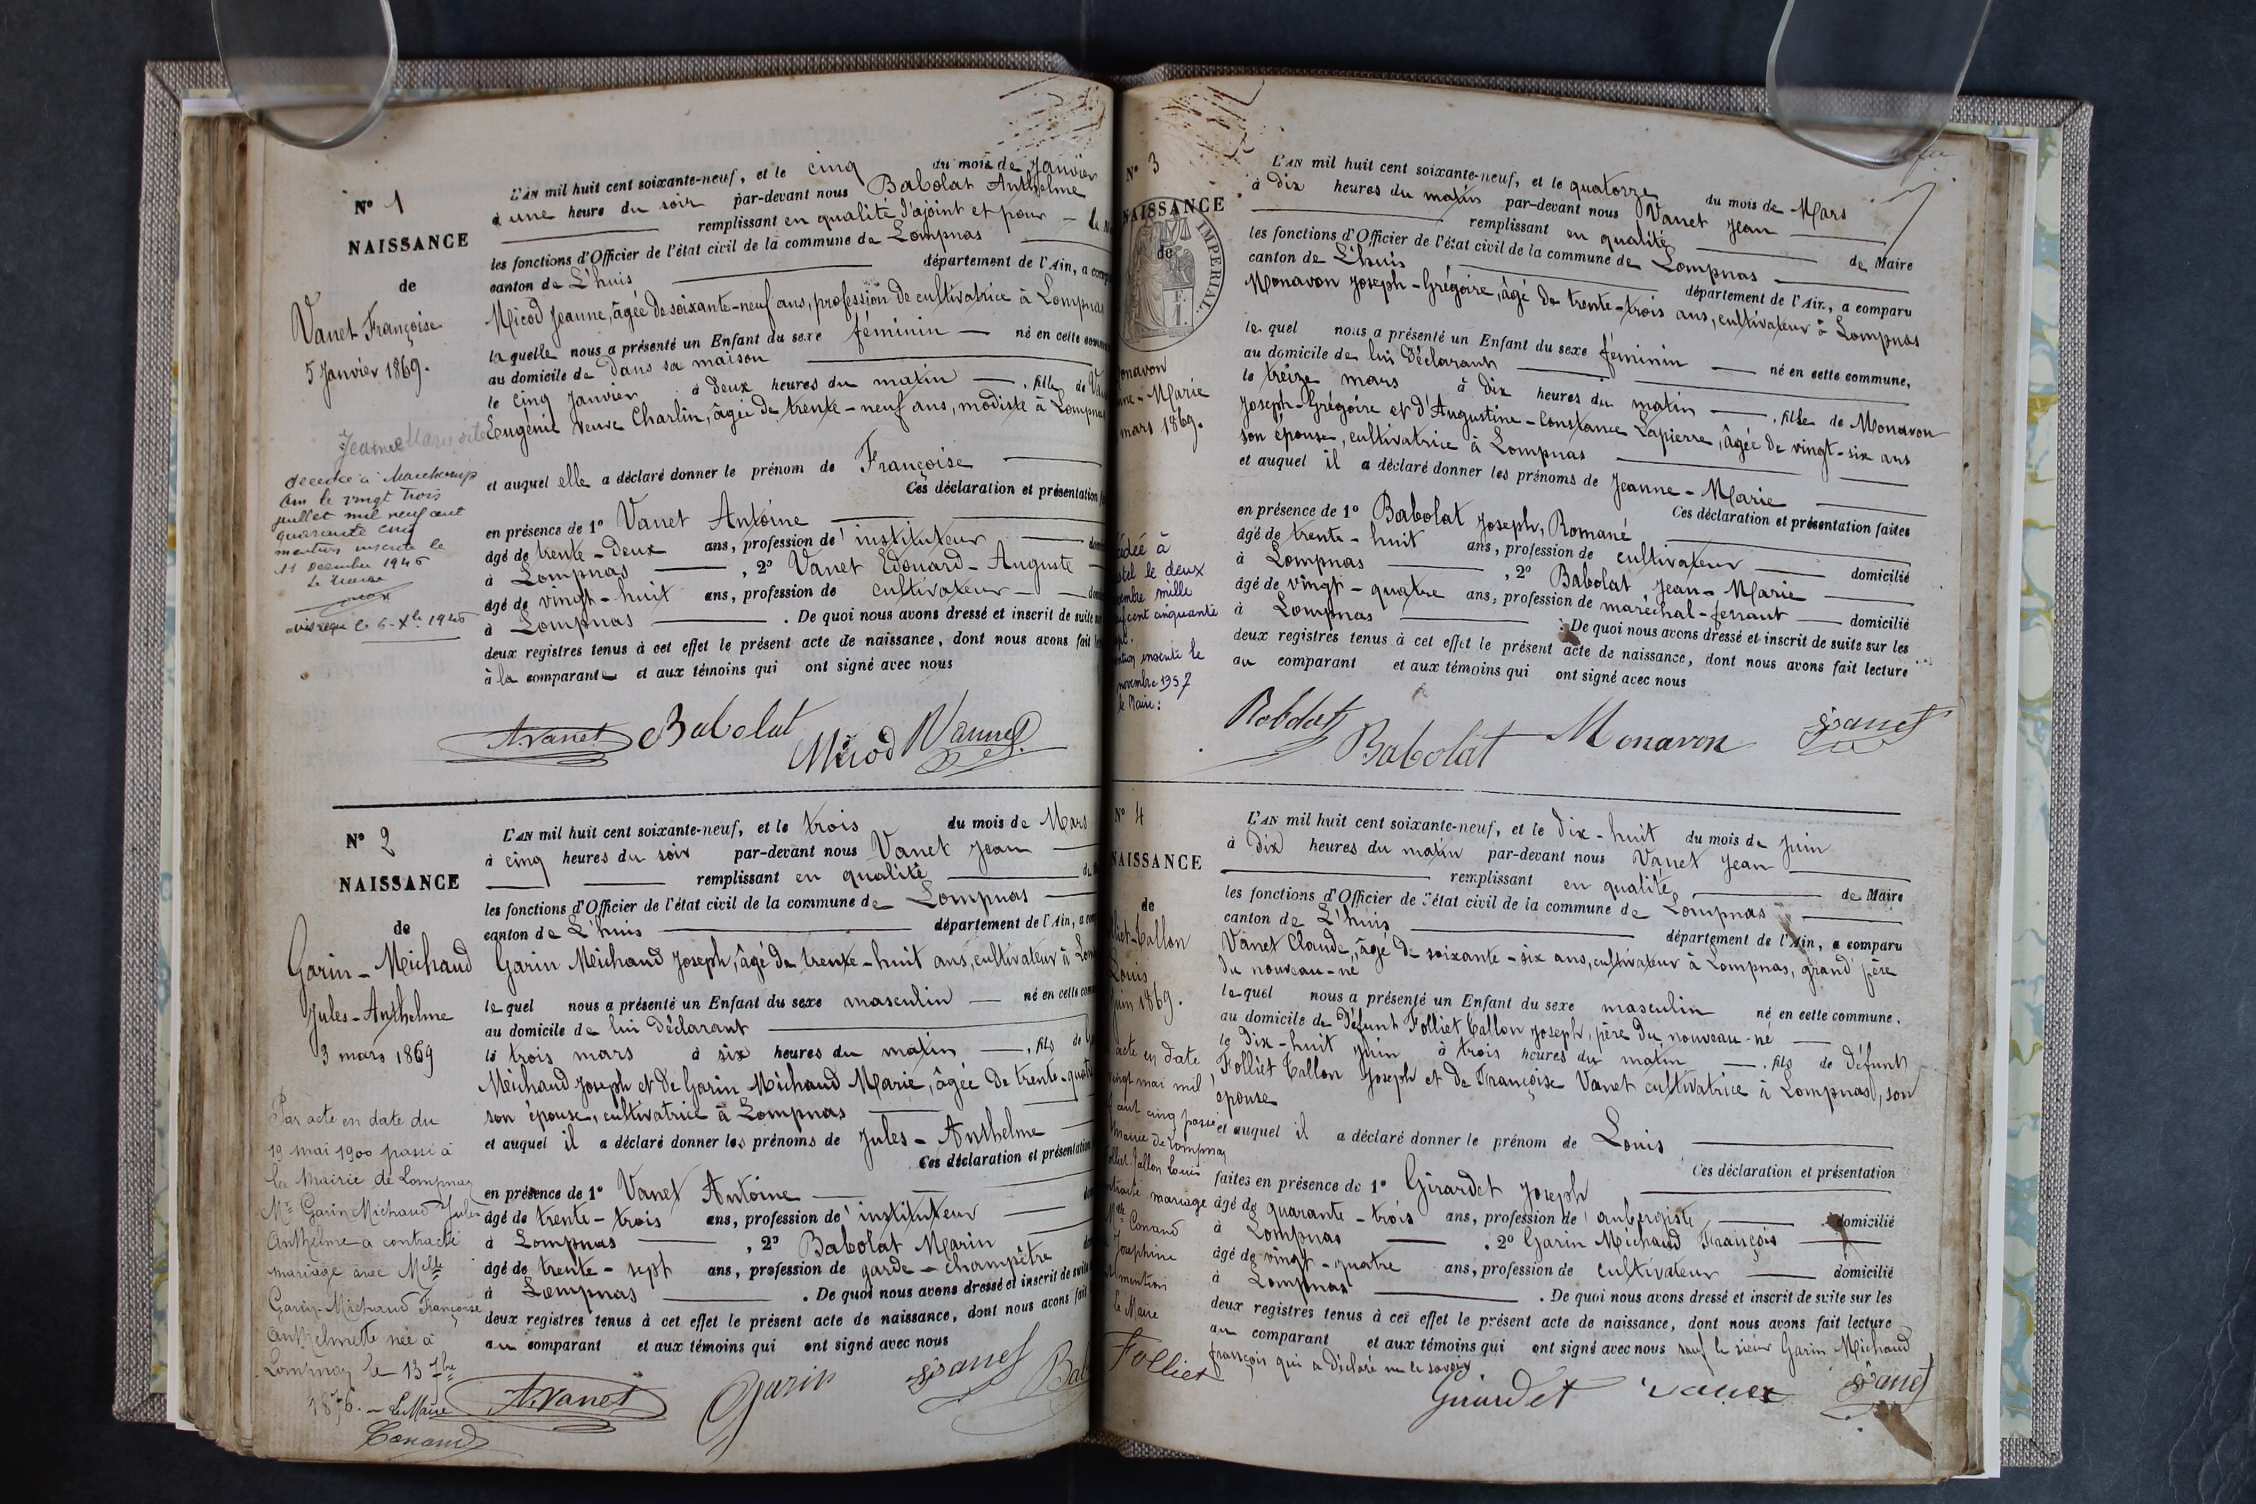 N° 1
NAISSANCE
de
Vanet Françoise
5 Janvier 1869.
Jeanne
décédée à Marchamp
Ain le vingt trois
juillet mil neuf cent
quarante cinq
mention inscrite le
11 Décembre 1945
Le Maire
L'AN mil huit cent soixante-neuf, et le cinq du mois de Janvier
à une heure du soir par-devant nous Babolat Anthelme
remplissant en qualité d'ajoint et pour
les fonctions d'Officier de l'état civil de la commune de Lompnas
canton de L'huis département de l'Ain, a comp
Micod Jeanne, âgée de soixante-neuf ans, profession de cultivatrice à Lompnas
la quelle nous a présenté un Enfant du sexe féminin né en cette comm
au domicile de dans sa maison
le cinq Janvier à deux heures du matin, fille de Va
Eugénie veuve Charlin, âgée de trente-neuf ans, modiste à Lompnas
et auquel elle a déclaré donner le prénom de Françoise
Ces déclaration et présentation
en présence de 1° Vanet Antoine
âgé de trente-deux ans, profession de instituteur
à Lompnas, 2° Vanet Edouard-Auguste
âgé de vingt-huit ans, profession de cultivateur
à Lompnas. De quoi nous avons dressé et inscrit de suite
deux registres tenus à cet effet le présent acte de naissance, dont nous avons fait
à la comparante et aux témoins qui ont signé avec nous
A. Vanet Babolat Micod Vannet
N° 2
NAISSANCE
de
Garin-Michaud
Jules-Anthelme
3 mars 1869
Par acte en date du
19 mai 1900 passé à
la Mairie de Lompnas
Mr Garin Michaud Jules
Anthelme a contracté
mariage avec Melle
Garin-Michaud Françoise
Anthelmette née à
Lompnas le 13 7bre
1876. Le Maire
Conand
L'AN mil huit cent soixante-neuf, et le trois du mois de Mars
à cinq heures du soir par-devant nous Vanet Jean
remplissant en qualité
les fonctions d'Officier de l'état civil de la commune de Lompnas
canton de L'huis département de l'Ain, a comp
Garin Michaud Joseph, âgé de trente-huit ans, cultivateur à Lom
le quel nous a présenté un Enfant du sexe masculin né en cette comm
au domicile de lui déclarant
le trois mars à six heures du matin, fils de
Michaud Joseph et de Garin Michaud Marie, âgée de trente-quat
son épouse, cultivatrice à Lompnas
et auquel il a déclaré donner les prénoms de Jules-Anthelme
Ces déclaration et présentation
en présence de 1° Vanet Antoine
âgé de trente-trois ans, profession de instituteur
à Lompnas, 2° Babolat Marin
âgé de trente-sept ans, profession de garde-champêtre
à Lompnas. De quoi nous avons dressé et inscrit de suite
deux registres tenus à cet effet le présent acte de naissance, dont nous avons fait
au comparant et aux témoins qui ont signé avec nous
A. Vanet Garin Vanet Bab
N° 3
NAISSANCE
de
IMPERIAL.
onavon
nne-Marie
mars 1869.
cédée à
le deux
embre mille
cent cinquante
inscrite le
novembre 1957
le Maire:
L'AN mil huit cent soixante-neuf, et le quatorze du mois de Mars
à dix heures du matin par-devant nous Vanet Jean
remplissant en qualité de Maire
les fonctions d'Officier de l'état civil de la commune de Lompnas
canton de L'huis département de l'Ain, a comparu
Monavon Joseph-Grégoire, âgé de trente-trois ans, cultivateur à Lompnas
le quel nous a présenté un Enfant du sexe féminin né en cette commune,
au domicile de lui déclarant
le treize mars à dix heures du matin, fille de Monavon
Joseph-Grégoire et d'Augustine-Constance Lapierre, âgée de vingt-six ans
son épouse, cultivatrice à Lompnas
et auquel il a déclaré donner les prénoms de Jeanne-Marie
Ces déclaration et présentation faites
en présence de 1° Babolat Joseph, Romané
âgé de trente-huit ans, profession de cultivateur domicilié
à Lompnas, 2° Babolat Jean-Marie
âgé de vingt-quatre ans, profession de maréchal-ferrant domicilié
à Lompnas. De quoi nous avons dressé et inscrit de suite sur les
deux registres tenus à cet effet le présent acte de naissance, dont nous avons fait lecture
au comparant et aux témoins qui ont signé avec nous
Babolat Babolat Monavon Vanet
N° 4
NAISSANCE
de
liet-Tallon
Louis
juin 1869.
acte en date
vingt mai mil
cent cinq passé
mairie de Lompnas
Folliet-Tallon Louis
contracté mariage
Conand
Joséphine
mention
le Maire
L'AN mil huit cent soixante-neuf, et le dix-huit du mois de Juin
à dix heures du matin par-devant nous Vanet Jean
remplissant en qualité de Maire
les fonctions d'Officier de l'état civil de la commune de Lompnas
canton de L'huis département de l'Ain, a comparu
Vanet Claude, âgé de soixante-six ans, cultivateur à Lompnas, grand père
du nouveau-né
le quel nous a présenté un Enfant du sexe masculin né en cette commune,
au domicile de défunt Folliet Tallon Joseph, père du nouveau-né
le dix-huit Juin à trois heures du matin, fils de défunt
Folliet Tallon Joseph et de Françoise Vanet cultivatrice à Lompnas, son
épouse
et auquel il a déclaré donner le prénom de Louis
Ces déclaration et présentation
faites en présence de 1° Girardet Joseph
âgé de quarante-trois ans, profession de aubergiste domicilié
à Lompnas, 2° Garin Michaud François
âgé de vingt-quatre ans, profession de cultivateur domicilié
à Lompnas. De quoi nous avons dressé et inscrit de suite sur les
deux registres tenus à cet effet le présent acte de naissance, dont nous avons fait lecture
au comparant et aux témoins qui ont signé avec nous sauf le sieur Garin Michaud
françois qui a déclaré ne le savoir
Folliet Girardet Vanet Vanet